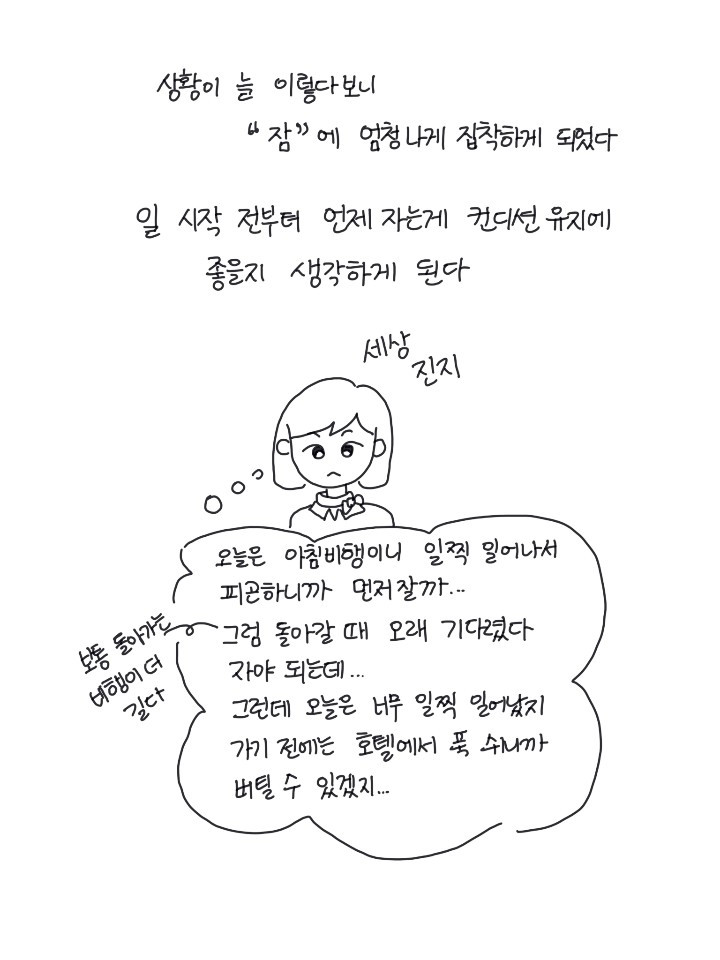 상황이 늘 이렇다보니
“잠”에 엄청나게 집착하게 되었다
일 시작 전부터 언제 자는게 컨디션 유지에
좋을지 생각하게 된다
세상
진지
오늘은 아침비행이니 일찍 일어나서
피곤하니까 먼저 잘까...
그럼 돌아갈 때 오래 기다렸다
자야 되는데...
그런데 오늘은 너무 일찍 일어났지
가기 전에는 호텔에서 푹 쉬니까
버틸 수 있겠지...
보통 돌아가는
비행이 더
길다